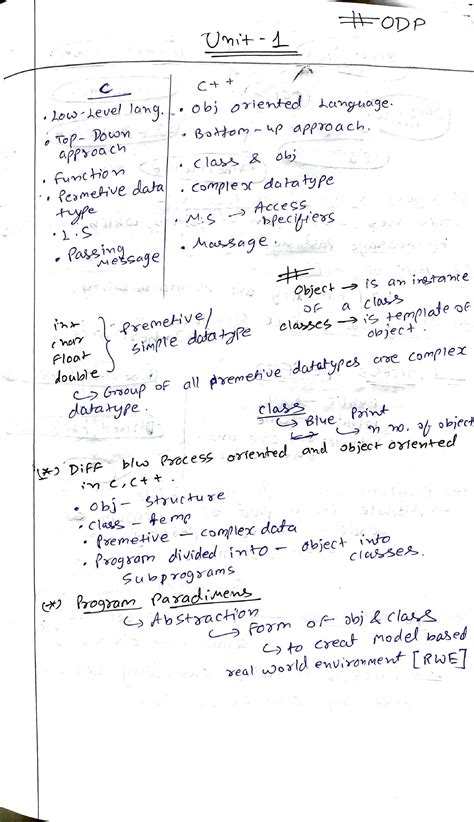 # ODP
Unit - 1
C
C++
• Low-Level lang.
• obj oriented Language.
• Top-Down approach
• Bottom-up approach.
• Function
• class & obj
• Permetive data type
• complex datatype
• L.S
• M.S → Access specifiers
• Passing message
• Massage.
#
Object → is an instance
of a class
classes → is template of
object.
int
char
Float
double
Premetive/
simple datatype
↳ Group of all premetive datatypes are complex
datatype.
class
↳ Blue Print
↳ n no. of object
(*) Diff b/w Process oriented and object oriented
in C, C++.
• obj - structure
• class - temp
• Premetive - complex data
• Program divided into - object into
subprograms
classes.
(*) Program Paradimens
↳ Abstraction
↳ Form of obj & class
↳ to creat model based
real world environment [RWE]